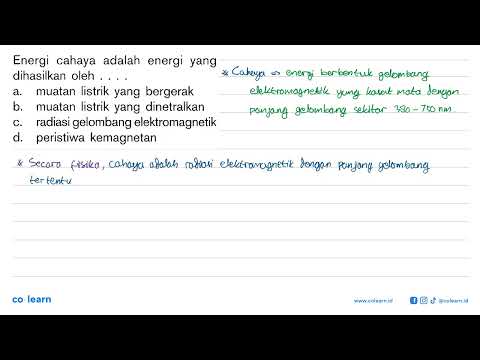 Energi cahaya adalah energi yang
dihasilkan oleh . . . .
a. muatan listrik yang bergerak
b. muatan listrik yang dinetralkan
c. radiasi gelombang elektromagnetik
d. peristiwa kemagnetan
* Cahaya => energi berbentuk gelombang
elektromagnetik yang kasat mata dengan
panjang gelombang sekitar 380 - 750 nm
* Secara fisika, cahaya adalah radiasi elektromagnetik dengan panjang gelombang
tertentu
co·learn
www.colearn.id
@colearn.id